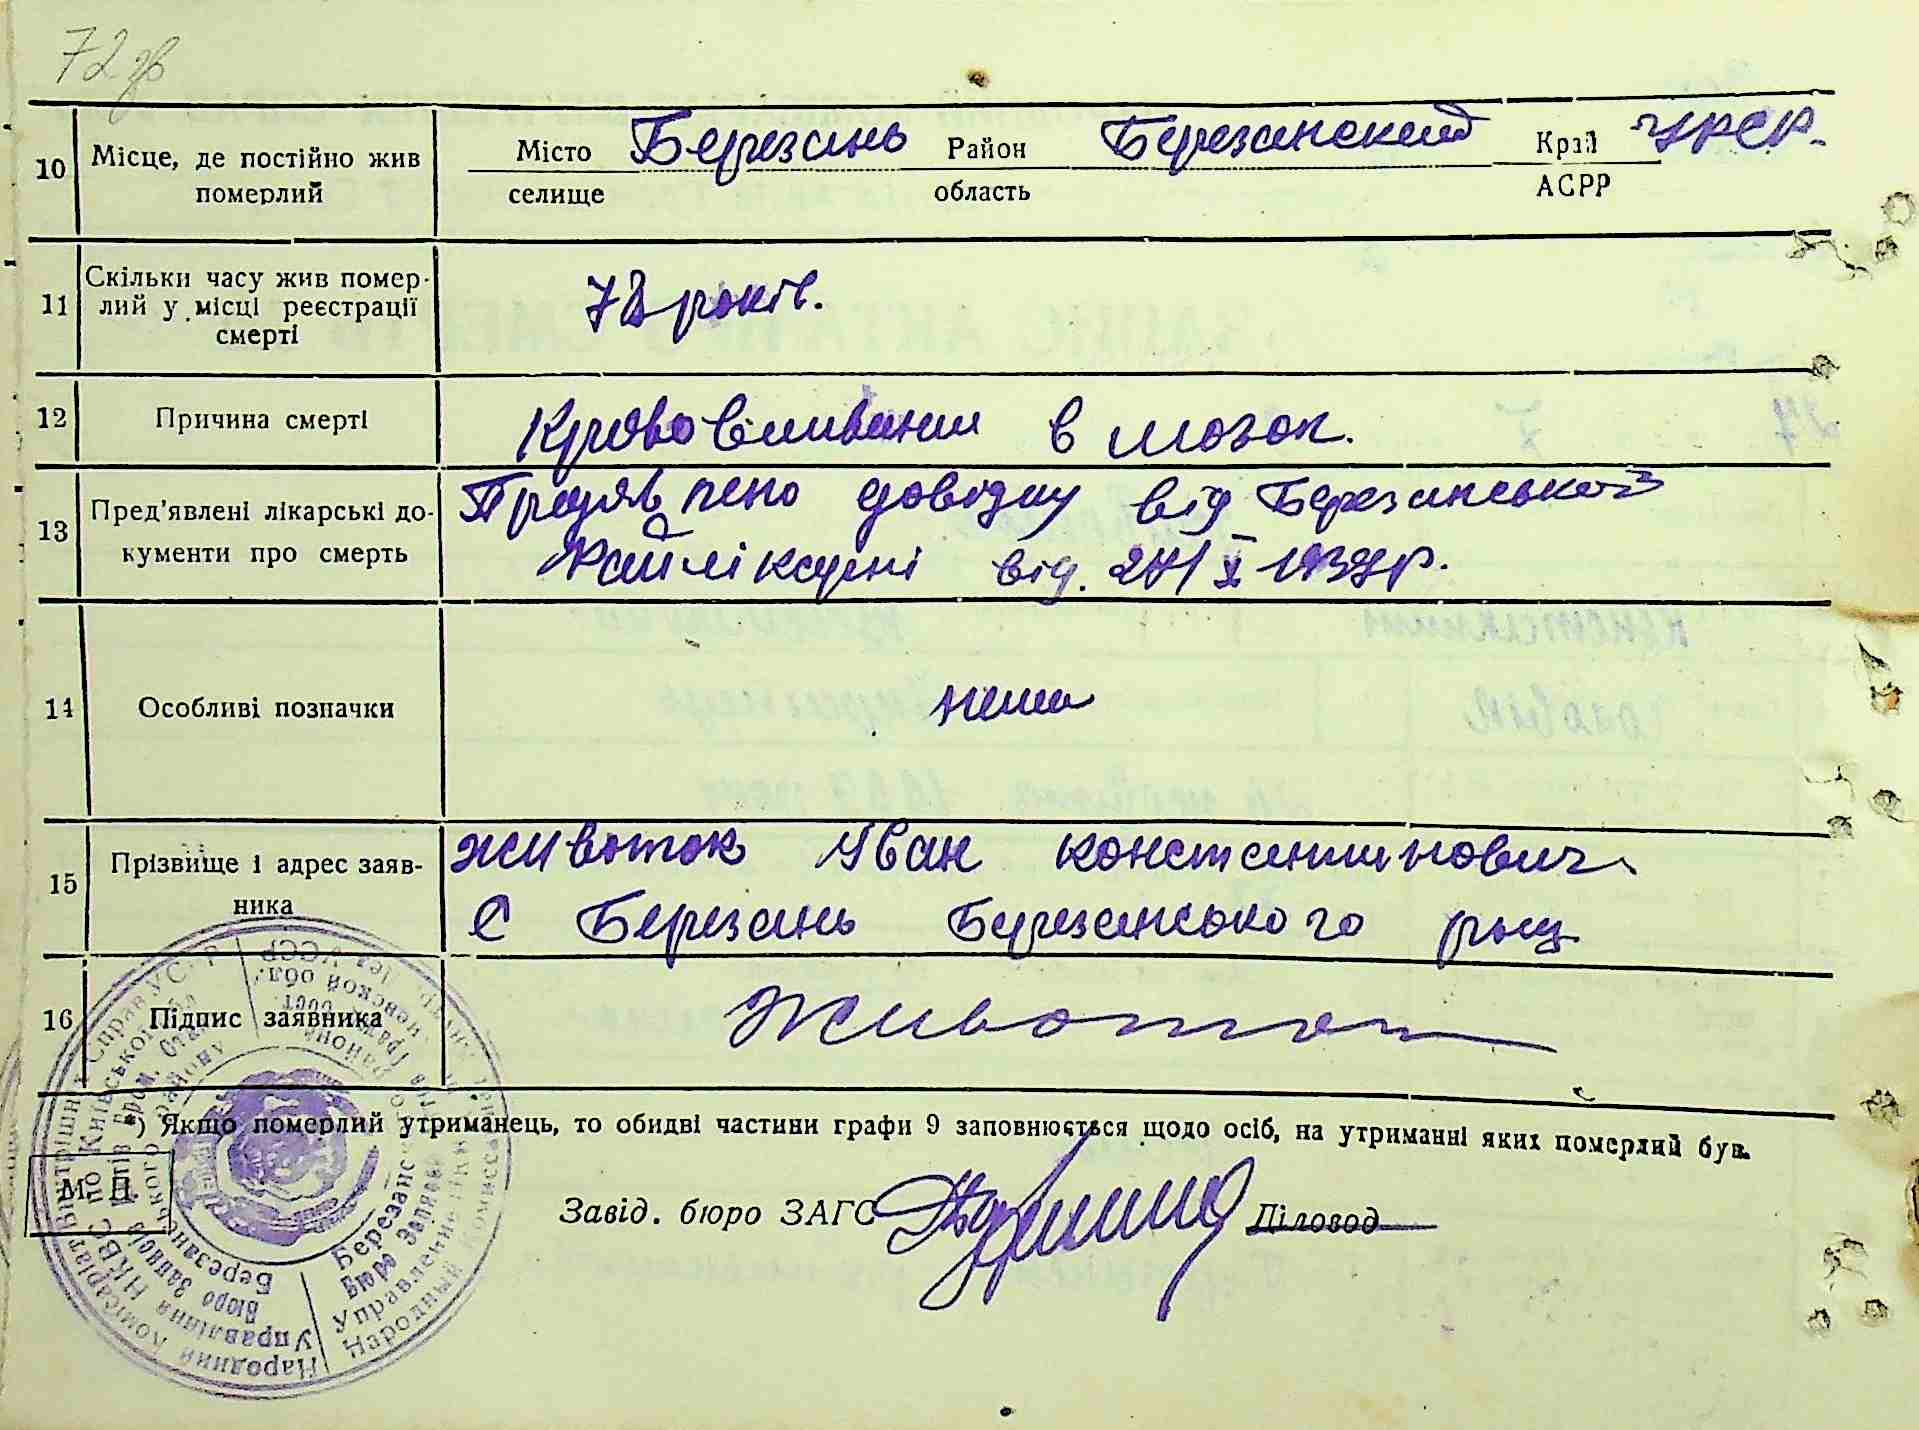 72 зв
10 Місце, де постійно жив померлий
Місто селище Березань Район область Березанский Край АСРР УРСР.
11 Скільки часу жив помер-
лий у місці реєстрації
смерті
78 років.
12 Причина смерті
Крововиливания в мозок.
13 Пред'явлені лікарські до-
кументи про смерть
Предявлено довідку від Березанської
Райлікарні від.
14 Особливі позначки
нема
15 Прізвище і адрес заяв-
ника
Животок Іван Константинович
С Березань Березанського рну
16 Підпис заявника
Животок
*) Якщо померлий утриманець, то обидві частини графи 9 заповнюється щодо осіб, на утриманні яких померлий був.
М. П.
Завід. бюро ЗАГС Діловод
Народний Комісаріат Внутрішніх Справ УСРР
Управління НКВС по Київській обл.
Бюро Записів Актів Гром. Стану
Березанського району